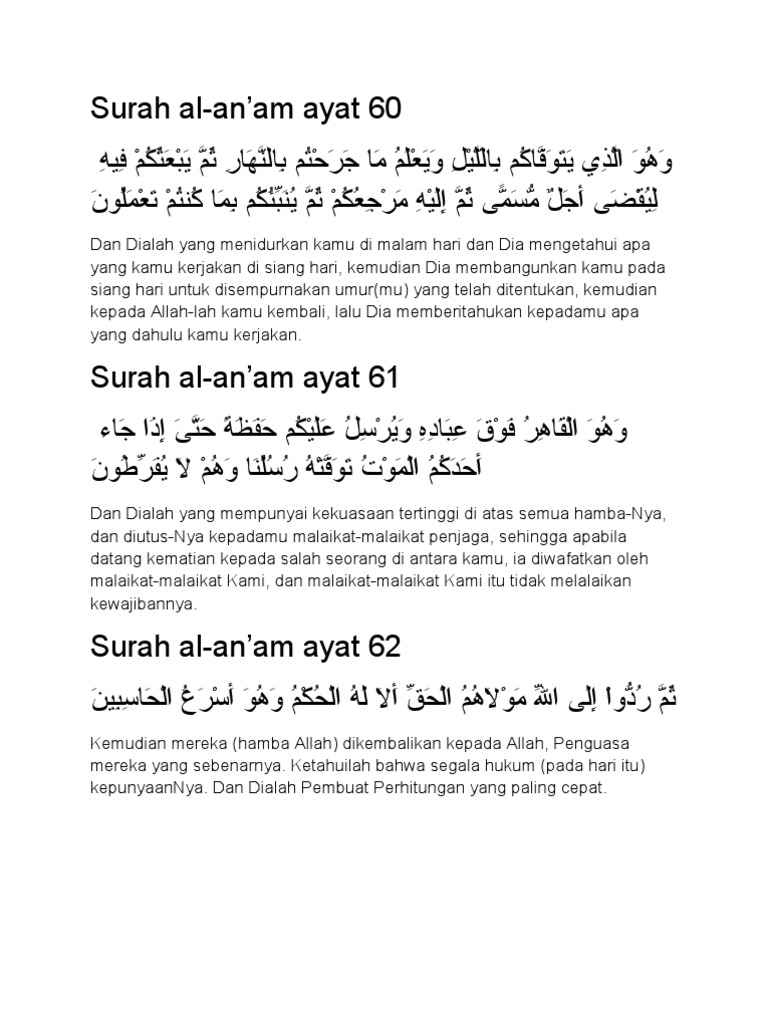 Surah al-an’am ayat 60
وَهُوَ الَّذِي يَتَوَفَّاكُم بِاللَّيْلِ وَيَعْلَمُ مَا جَرَحْتُم بِالنَّهَارِ ثُمَّ يَبْعَثُكُمْ فِيهِ
لِيُقْضَى أَجَلٌ مُّسَمًّى ثُمَّ إِلَيْهِ مَرْجِعُكُمْ ثُمَّ يُنَبِّئُكُم بِمَا كُنتُمْ تَعْمَلُونَ
Dan Dialah yang menidurkan kamu di malam hari dan Dia mengetahui apa
yang kamu kerjakan di siang hari, kemudian Dia membangunkan kamu pada
siang hari untuk disempurnakan umur(mu) yang telah ditentukan, kemudian
kepada Allah-lah kamu kembali, lalu Dia memberitahukan kepadamu apa
yang dahulu kamu kerjakan.
Surah al-an’am ayat 61
وَهُوَ الْقَاهِرُ فَوْقَ عِبَادِهِ وَيُرْسِلُ عَلَيْكُم حَفَظَةً حَتَّىَ إِذَا جَاء
أَحَدَكُمُ الْمَوْتُ تَوَفَّتْهُ رُسُلُنَا وَهُمْ لاَ يُفَرِّطُونَ
Dan Dialah yang mempunyai kekuasaan tertinggi di atas semua hamba-Nya,
dan diutus-Nya kepadamu malaikat-malaikat penjaga, sehingga apabila
datang kematian kepada salah seorang di antara kamu, ia diwafatkan oleh
malaikat-malaikat Kami, dan malaikat-malaikat Kami itu tidak melalaikan
kewajibannya.
Surah al-an’am ayat 62
ثُمَّ رُدُّواْ إِلَى اللّهِ مَوْلاَهُمُ الْحَقِّ أَلاَ لَهُ الْحُكْمُ وَهُوَ أَسْرَعُ الْحَاسِبِينَ
Kemudian mereka (hamba Allah) dikembalikan kepada Allah, Penguasa
mereka yang sebenarnya. Ketahuilah bahwa segala hukum (pada hari itu)
kepunyaanNya. Dan Dialah Pembuat Perhitungan yang paling cepat.